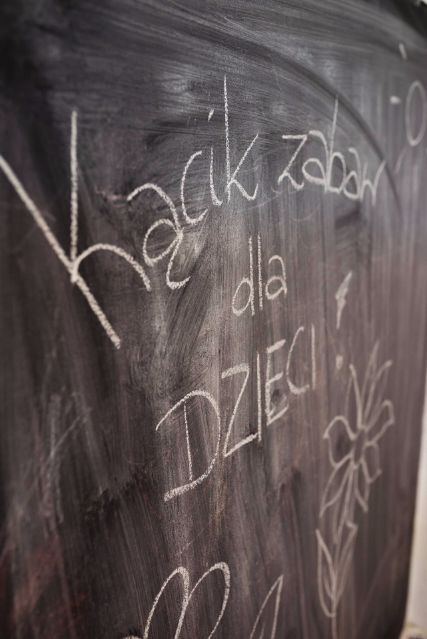 Kącik zabaw
dla
DZIECI!